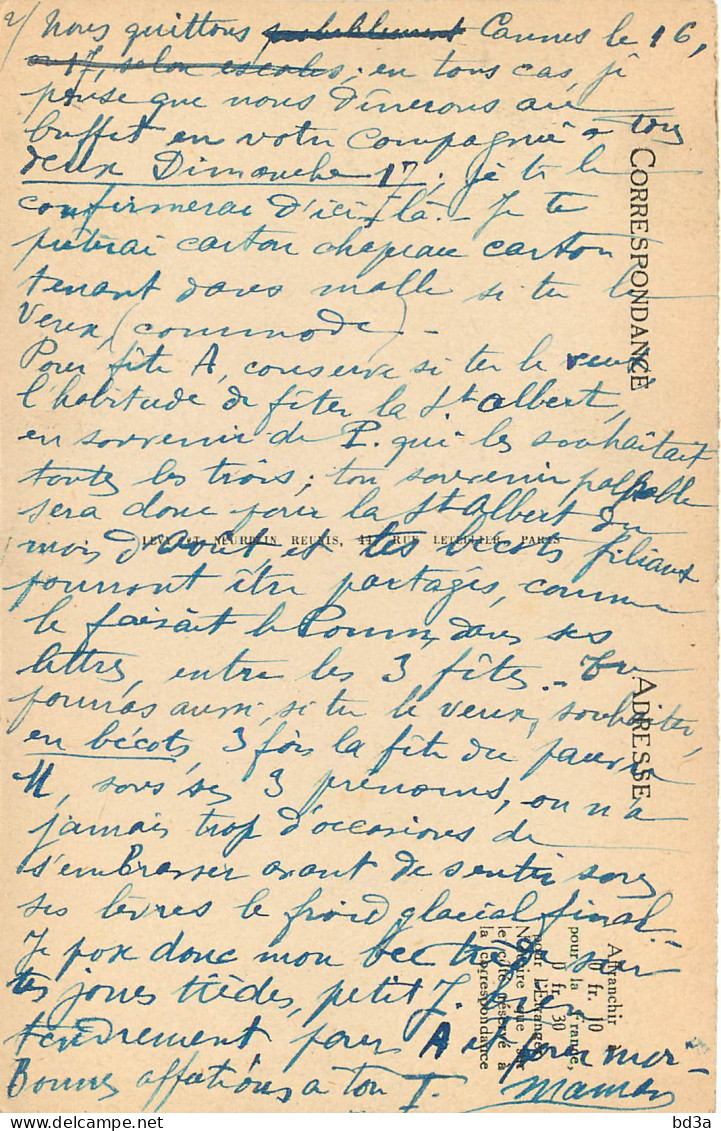 2/ Nous quittons probablement Cannes le 16,
ou 17, selon escales; en tous cas, je
pense que nous dînerons au
buffet en votre compagnie à tous
deux Dimanche 17, je te le
confirmerai d'ici-là. Je te
prêterai carton chapeau carton
tenant dans malle si tu le
veux (commode) -
Pour fête A, conserve si tu le veux
l'habitude de fêter la St Albert,
en souvenir de P. qui les souhaitait
toutes les trois; ton souvenir palpable
sera donc pour la St Albert du
mois d'août et les bécots filiaux
pourront être partagés, comme
le faisait le dans ses
lettres, entre les 3 fêtes. - Tu
pourras aussi, si tu le veux, souhaiter,
en bécots, 3 fois la fête du pauvre
sous ses 3 prénoms, on n'a
jamais trop d'occasions de
s'embrasser avant de sentir sous
ses lèvres le froid glacial final.
Je pose donc mon bec sur
tes joues tièdes, petit J. bien
tendrement pour A et pour moi -
Bonnes affections à ton T. Maman
CORRESPONDANCE
ADRESSE
LEVY ET NEURDEIN REUNIS, 44, RUE LETELLIER, PARIS
Affranchir à
0 fr. 10
pour la france,
0 fr. 30
pour l'Etranger
le côté réservé à
la correspondance